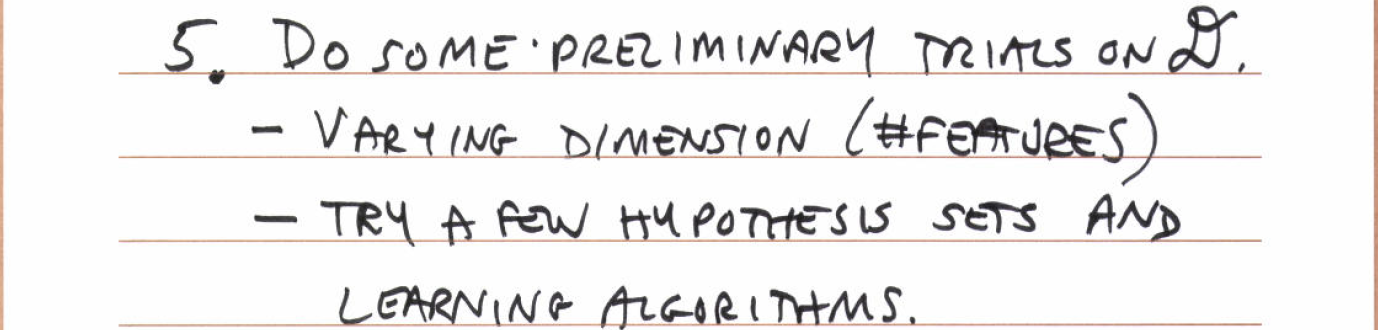 5. DO SOME PRELIMINARY TRIALS ON 𝒟.
- VARYING DIMENSION (#FEATURES)
- TRY A FEW HYPOTHESIS SETS AND
LEARNING ALGORITHMS.